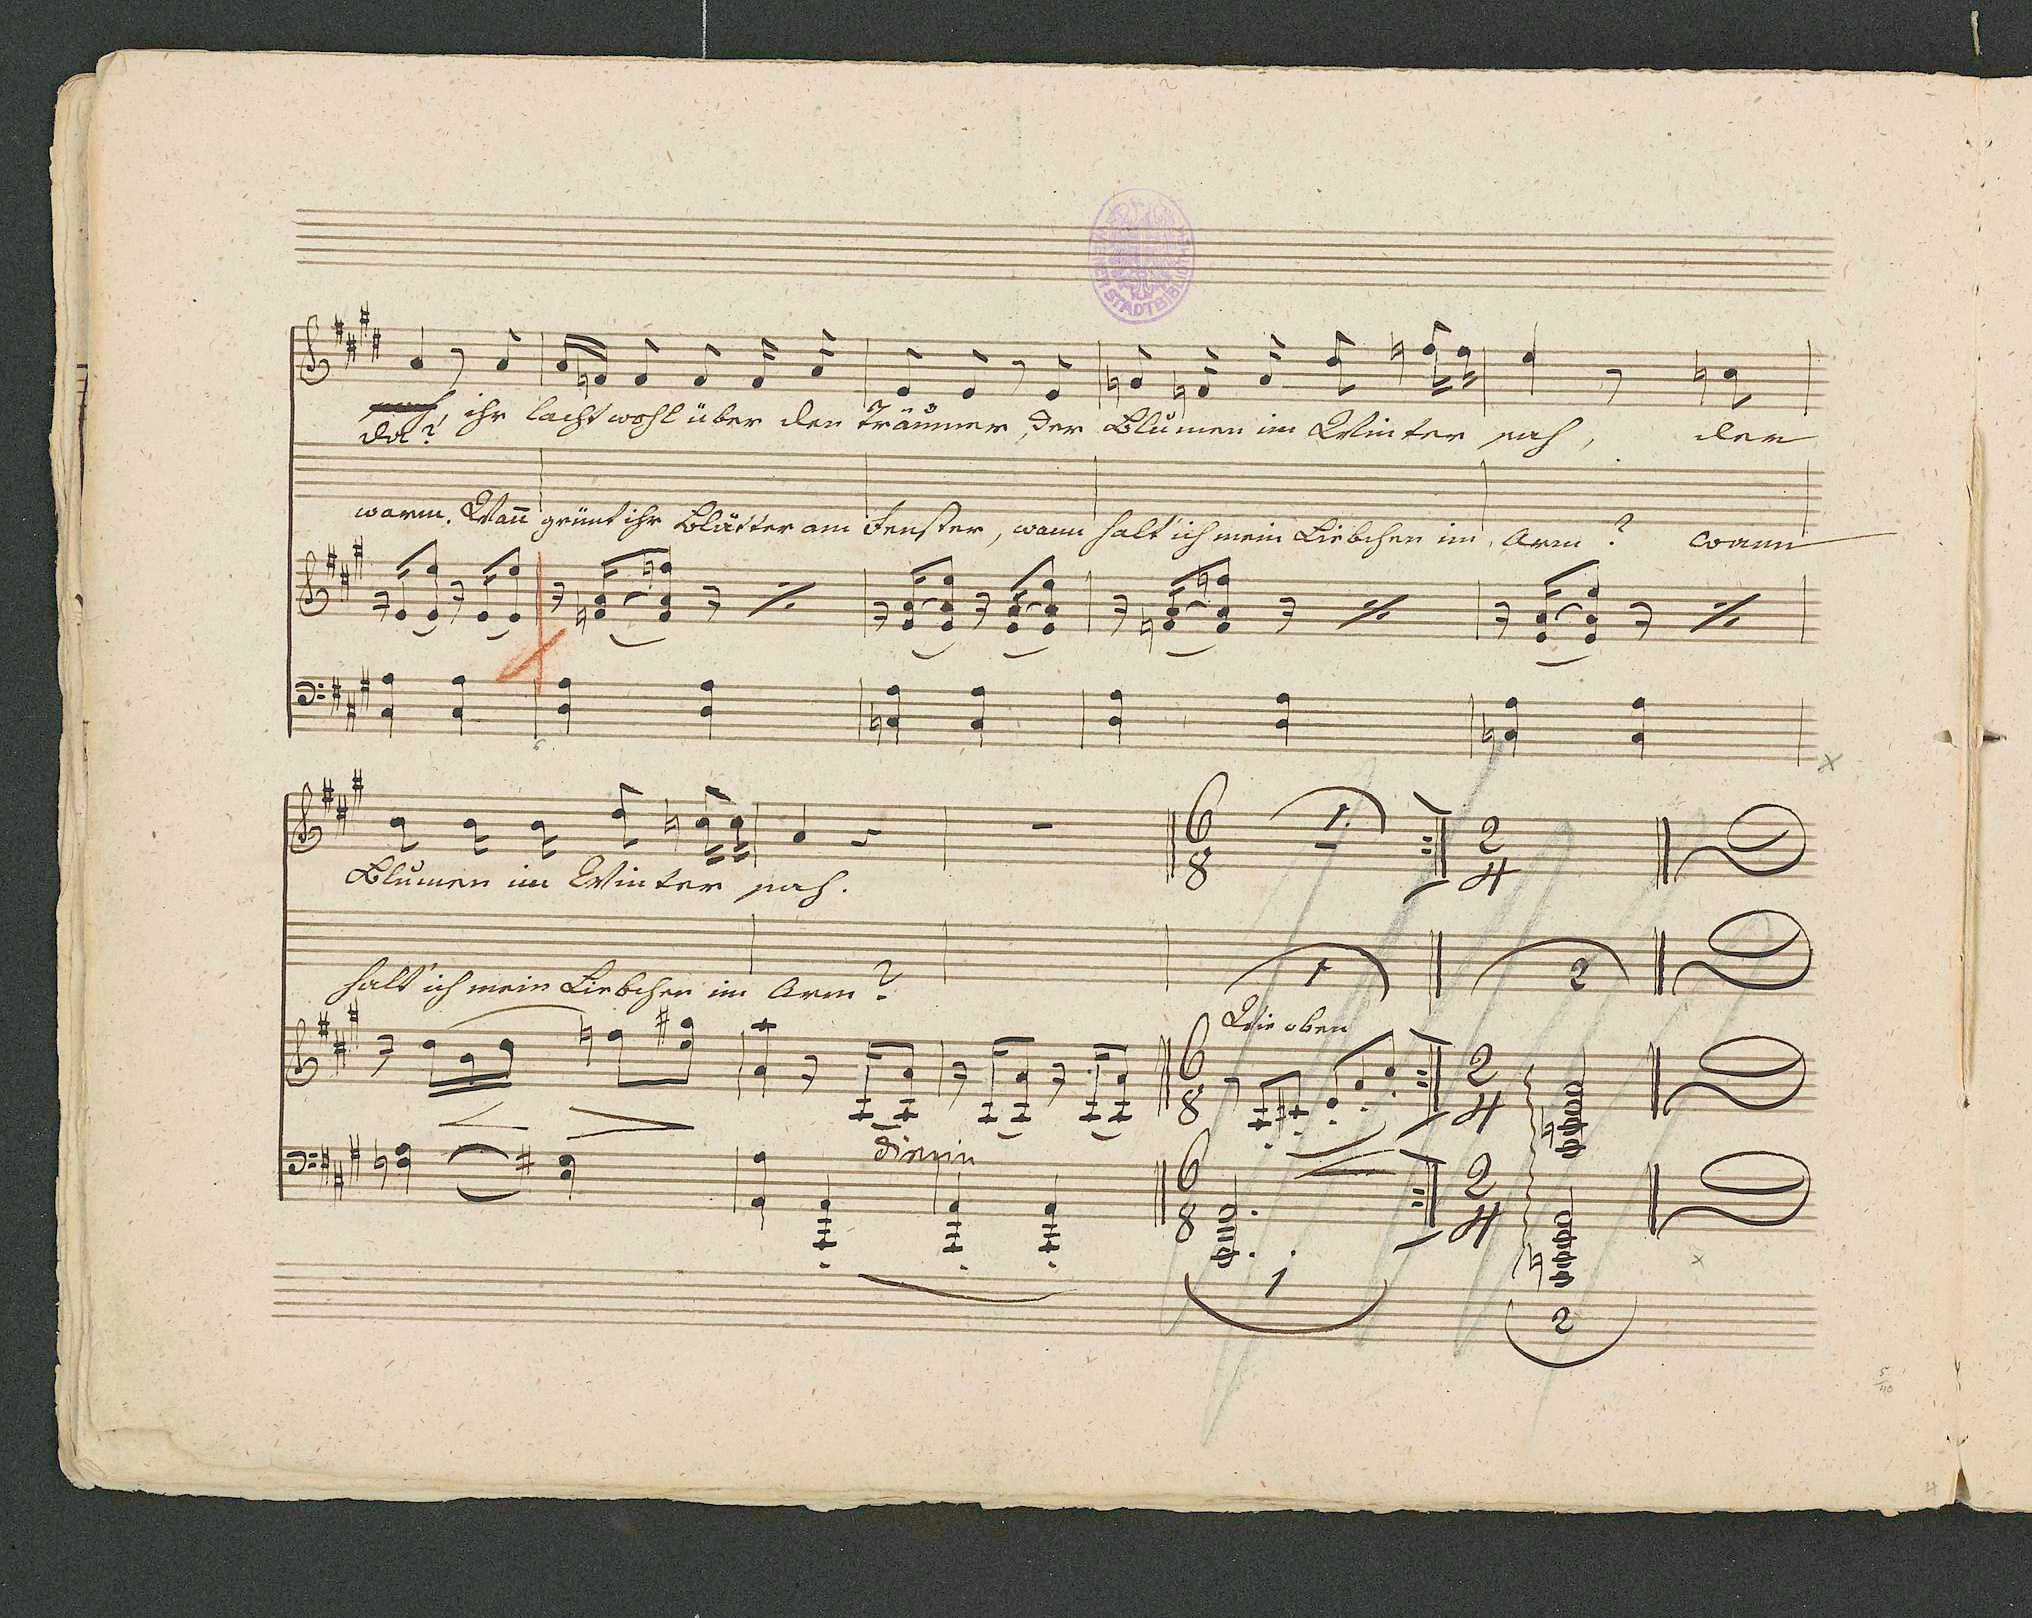 WIENER STADTBIBLIOTHEK
ihr lacht wohl über den Träumer, der Blumen im Winter sah, der
da?
warm. Wañ grünt ihr Blätter am Fenster, wann halt' ich mein Liebchen im Arm? wann
6 8 1. 2 4
Blumen im Winter sah.
1 2
halt' ich mein Liebchen im Arm?
Wie oben
6 8 2 4
dimin
6 8 2 4
1 2
5/110
4